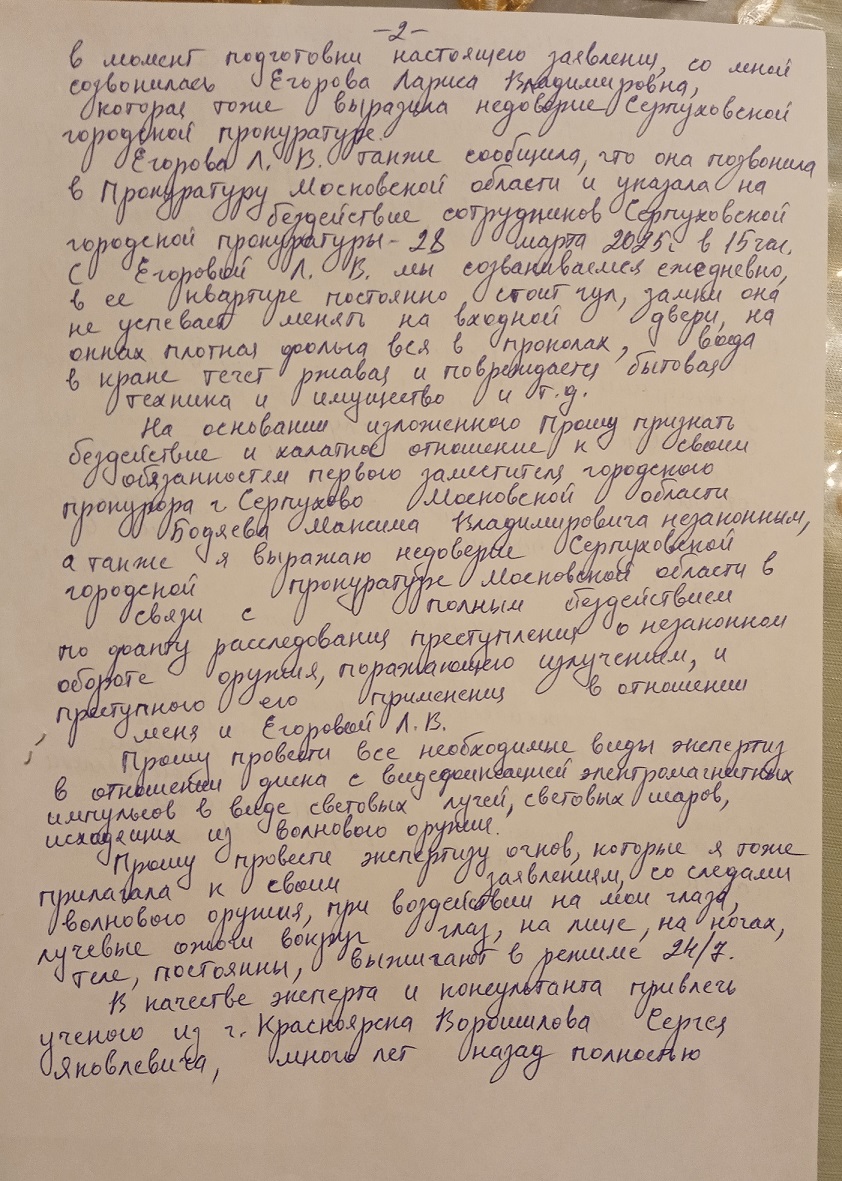 -2-
в момент подготовки настоящего заявления, со мной
созвонилась Егорова Лариса Владимировна,
которая тоже выразила недоверие Серпуховской
городской прокуратуре.
Егорова Л. В. также сообщила, что она позвонила
в Прокуратуру Московской области и указала на
бездействие сотрудников Серпуховской
городской прокуратуры - 28 марта 2025г. в 15 час.
С Егоровой Л. В. мы созваниваемся ежедневно,
в ее квартире постоянно стоит гул, замки она
не успевает менять на входной двери, на
окнах плотная фольга вся в проколах, вода
в кране течет ржавая и повреждается бытовая
техника и имущество и т.д.
На основании изложенного Прошу признать
бездействие и халатное отношение к своим
обязанностям первого заместителя городского
прокурора г. Серпухово Московской области
Бодяева Максима Владимировича незаконным,
а также я выражаю недоверие Серпуховской
городской прокуратуре Московской области в
связи с полным бездействием
по факту расследования преступления о незаконном
обороте оружия, поражающего излучением, и
преступного его применения в отношении
меня и Егоровой Л. В.
Прошу провести все необходимые виды экспертиз
в отношении диска с видеофиксацией электромагнитных
импульсов в виде световых лучей, световых шаров,
исходящих из волнового оружия.
Прошу провести экспертизу очков, которые я тоже
прилагала к своим заявлениям, со следами
волнового оружия, при воздействии на мои глаза,
лучевые ожоги вокруг глаз, на лице, на ногах,
теле, постоянны, выжигают в режиме 24/7.
В качестве эксперта и консультанта привлечь
ученого из г. Красноярска Ворошилова Сергея
Яковлевича, много лет назад полностью